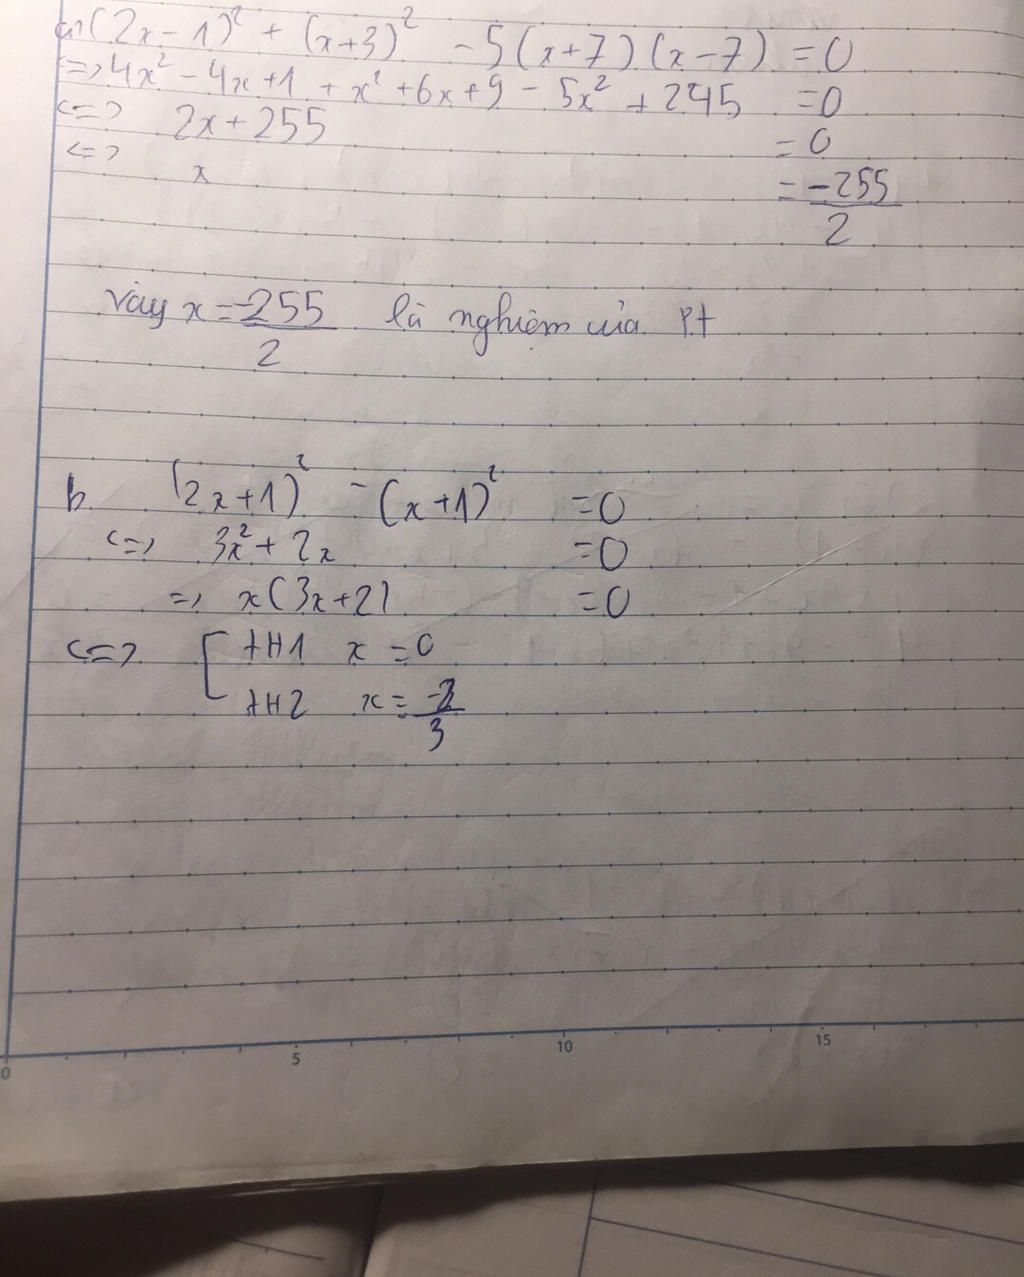 a) (2x-1)² + (x+3)² - 5(x+7)(x-7) = 0
<=> 4x² - 4x+1 + x² +6x+9 - 5x² + 245 = 0
<=> 2x+255 = 0
<=> x = -255/2
Vậy x = -255/2 là nghiệm của Pt
b. (2x+1)² - (x+1)² = 0
<=> 3x² + 2x = 0
=> x(3x+2) = 0
<=> [ TH1 x = 0
TH2 x = -2/3
0 5 10 15